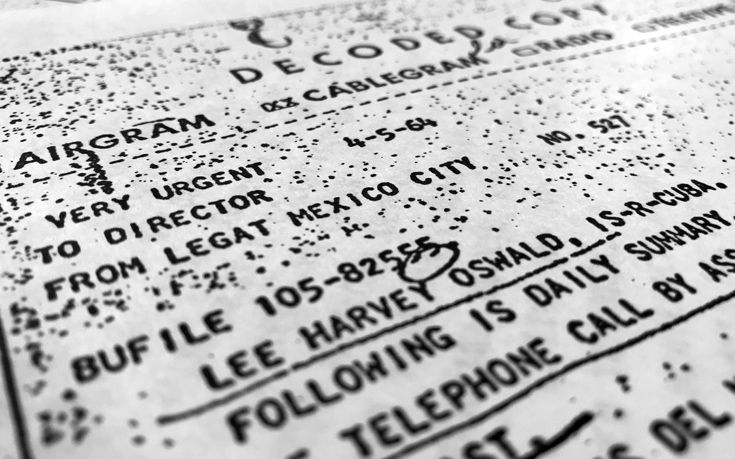 DECODED COPY
AIRGRAM CABLEGRAM RADIO
4-5-64 NO. 527
VERY URGENT
TO DIRECTOR
FROM LEGAT MEXICO CITY
BUFILE 105-82555
LEE HARVEY OSWALD, IS-R-CUBA.
FOLLOWING IS DAILY SUMMARY
TELEPHONE CALL BY ASS
DEL